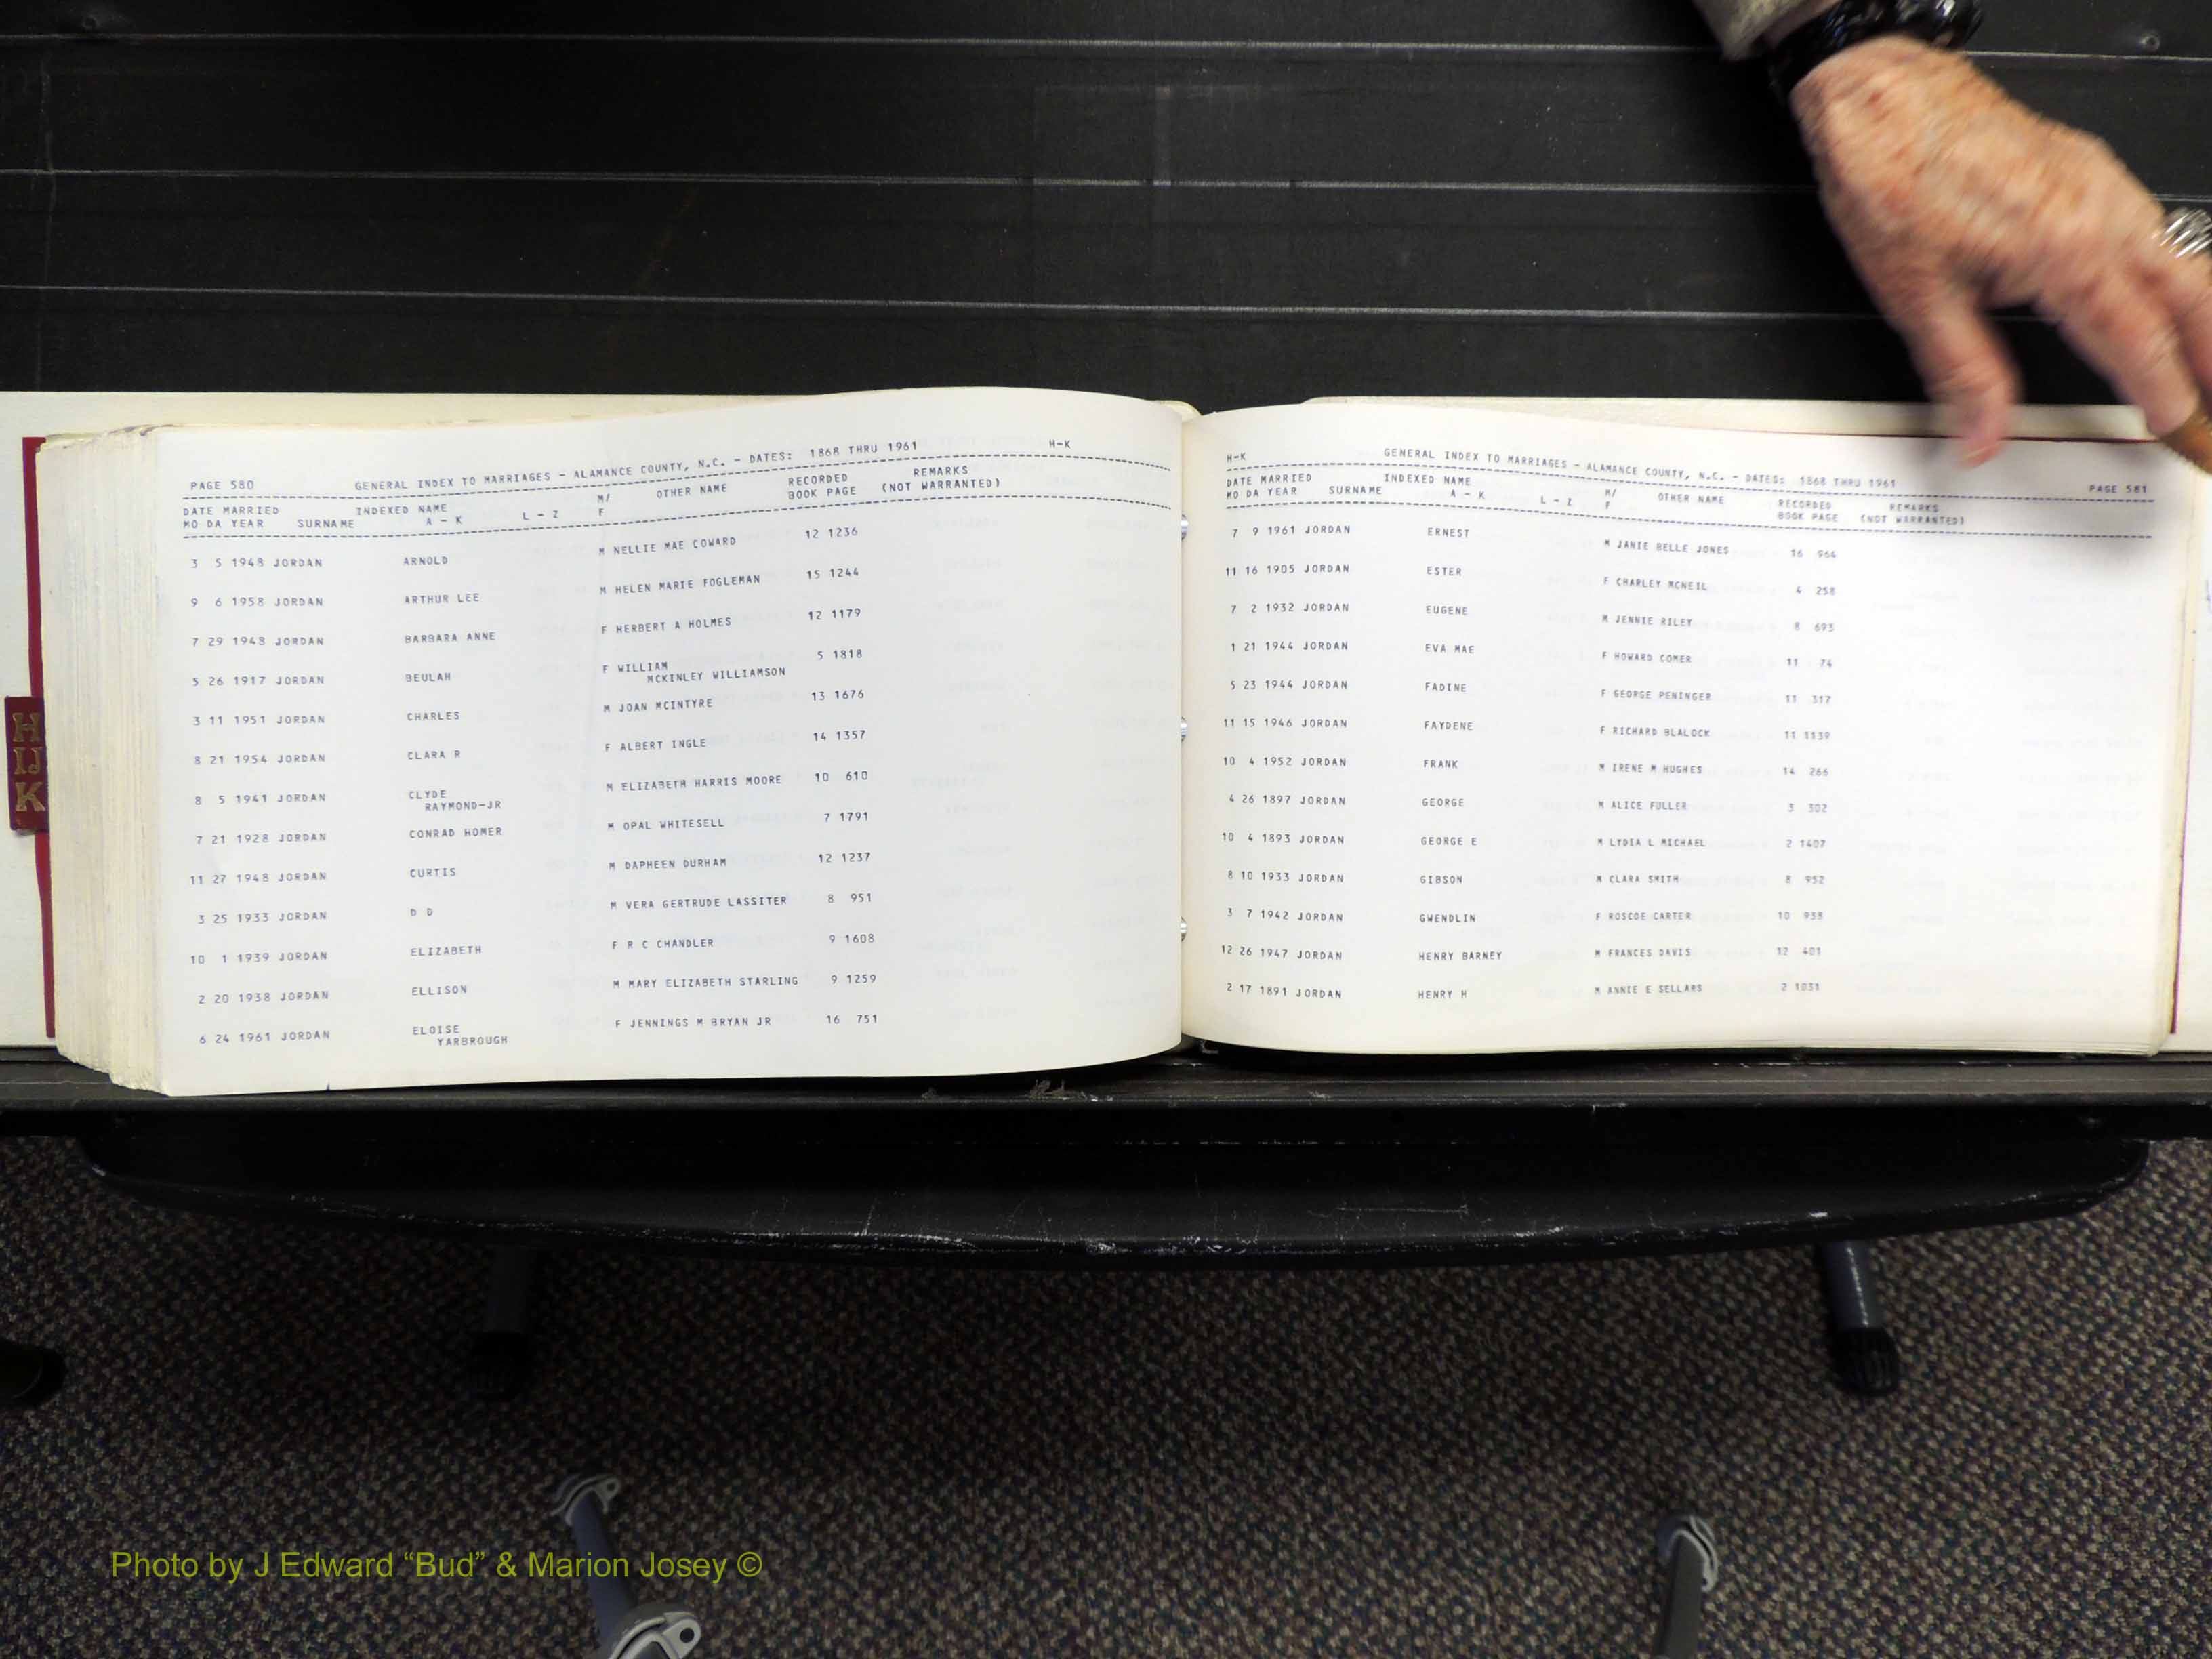 PAGE 580 GENERAL INDEX TO MARRIAGES - ALAMANCE COUNTY, N.C. - DATES: 1868 THRU 1961 H-K
DATE MARRIED INDEXED NAME M/ OTHER NAME RECORDED REMARKS
MO DA YEAR SURNAME A - K L - Z F BOOK PAGE (NOT WARRANTED)
3 5 1948 JORDAN ARNOLD M NELLIE MAE COWARD 12 1236
9 6 1958 JORDAN ARTHUR LEE M HELEN MARIE FOGLEMAN 15 1244
7 29 1948 JORDAN BARBARA ANNE F HERBERT A HOLMES 12 1179
5 26 1917 JORDAN BEULAH F WILLIAM 5 1818
MCKINLEY WILLIAMSON
3 11 1951 JORDAN CHARLES M JOAN MCINTYRE 13 1676
8 21 1954 JORDAN CLARA R F ALBERT INGLE 14 1357
8 5 1941 JORDAN CLYDE M ELIZABETH HARRIS MOORE 10 610
RAYMOND-JR
7 21 1928 JORDAN CONRAD HOMER M OPAL WHITESELL 7 1791
11 27 1948 JORDAN CURTIS M DAPHEEN DURHAM 12 1237
3 25 1933 JORDAN D D M VERA GERTRUDE LASSITER 8 951
10 1 1939 JORDAN ELIZABETH F R C CHANDLER 9 1608
2 20 1938 JORDAN ELLISON M MARY ELIZABETH STARLING 9 1259
6 24 1961 JORDAN ELOISE F JENNINGS M BRYAN JR 16 751
YARBROUGH
H-K GENERAL INDEX TO MARRIAGES - ALAMANCE COUNTY, N.C. - DATES: 1868 THRU 1961 PAGE 581
DATE MARRIED INDEXED NAME M/ OTHER NAME RECORDED REMARKS
MO DA YEAR SURNAME A - K L - Z F BOOK PAGE (NOT WARRANTED)
7 9 1961 JORDAN ERNEST M JANIE BELLE JONES 16 964
11 16 1905 JORDAN ESTER F CHARLEY MCNEIL 4 258
7 2 1932 JORDAN EUGENE M JENNIE RILEY 8 693
1 21 1944 JORDAN EVA MAE F HOWARD COMER 11 74
5 23 1944 JORDAN FADINE F GEORGE PENINGER 11 317
11 15 1946 JORDAN FAYDENE F RICHARD BLALOCK 11 1139
10 4 1952 JORDAN FRANK M IRENE M HUGHES 14 266
4 26 1897 JORDAN GEORGE M ALICE FULLER 3 302
10 4 1893 JORDAN GEORGE E M LYDIA L MICHAEL 2 1407
8 10 1933 JORDAN GIBSON M CLARA SMITH 8 952
3 7 1942 JORDAN GWENDLIN F ROSCOE CARTER 10 938
12 26 1947 JORDAN HENRY BARNEY M FRANCES DAVIS 12 401
2 17 1891 JORDAN HENRY H M ANNIE E SELLARS 2 1031
H
IJ
K
Photo by J Edward “Bud” & Marion Josey ©